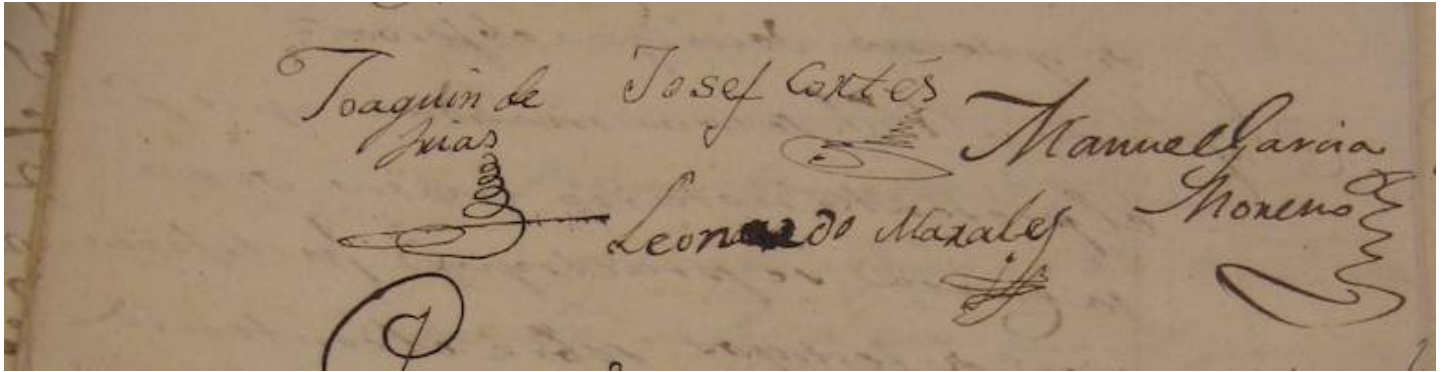 Joaquin de
Frias
Josef Cortés
Manuel Garcia
Moreno
Leonardo Morales